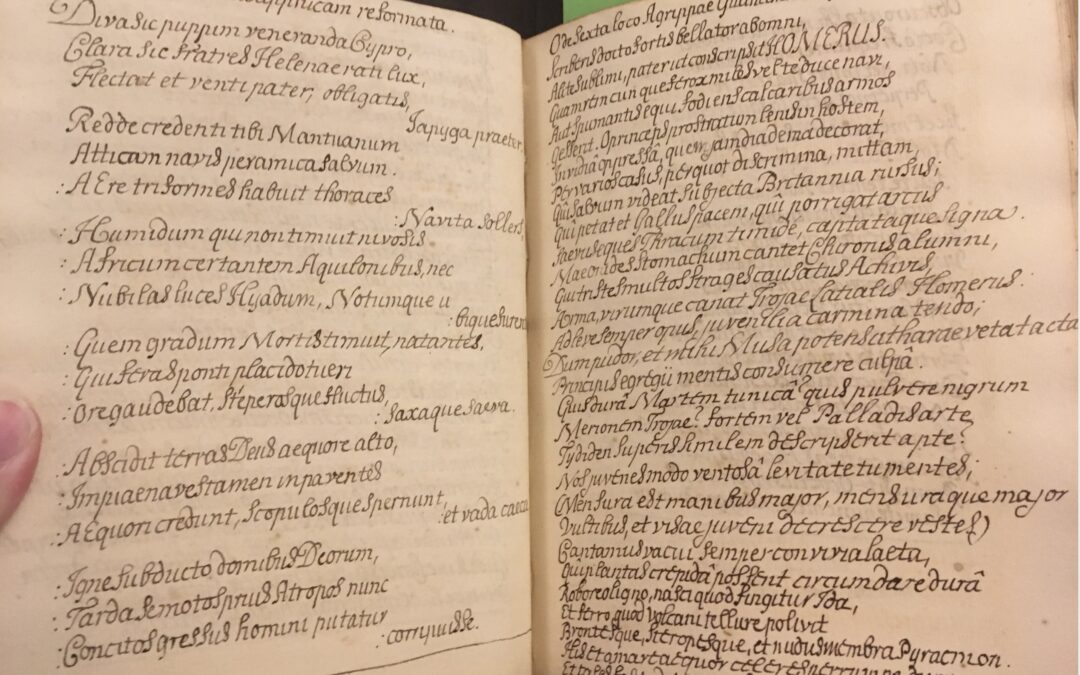 Sapphicam reformata.
Diva sic puppim veneranda Cypro,
Clara sic fratres Helenae rati lux,
Flectat et venti pater, obligatis,
Japyga praeter,
Redde credenti tibi Mantuanum
Atticam navis per amica salvum.
: AEre triformes habuit thoraces
: Navita sollers,
: Humidum qui non timuit nivosis
: Africum certantem Aquilonibus, nec
: Nubilas luces Hyadum, Notumque u
: bique furen
: Quem gradum Mortis timuit, natantes,
: Qui feras ponti placido tueri
: Ore gaudebat, steperosque fluctus,
: saxaque saeva.
: Abscidit terras Deus aequore alto,
: Impiae naves tamen inpaventes
: AEquori credunt, scopulosque spernunt,
: et vada caeca
: Igne subducto domibus Deorum,
: Tarda semotos prius Atropos nunc
: Concitos gressus homini putatur
: corripuisse.
Ode sexta loco Agrippae
Scriberis docto fortis bellator ab omni,
Alite sublimi, pater ut conscripsit HOMERUS.
Quamrem cunque ferox miles vel te duce navi,
Aut spumantis equi fodiens calcaribus armos
Gesserit. O princeps prostratum lenis in hostem,
Invidiâ oppressâ, quem jam diadema decorat,
Per varios casus, per quot discrimina, mittam,
Qui salvum videat subjecta Britannia rursus;
Qui petat et Gallus pacem, qui porrigat arcus
Saevus eques Thracum timide, captataque signa.
Maeonides stomachum cantet Chironis alumni,
Qui tristes multos strages causatus Achivis,
Arma, virumque canat Trojae Latialis Homerus.
Ad leve semper opus, juvenilia carmina tendo;
Dum pudor, et mihi Musa potens citharae vetat acta
Principis egregii mentis consumere culpâ.
Quis durâ Martem tunicâ? quis pulvere nigrum
Merionem Trojae? fortem vel Palladis arte
Tydiden superis similem descripserit apte?
Nos juvenes modo ventosâ levitate tumentes;
(Mensura est manibus major, mensuraque major
Vultibus, et visae juveni decrescere vestes)
Cantamus vacui semper convivia laeta,
Qui plantas crepidâ possent circumdare durâ
Roboreo ligno, nasci quod fingitur Ida,
Et ferro quod Vulcani tellure polivit
Brontesque, Steropesque, et nudus membra Pyracmon.